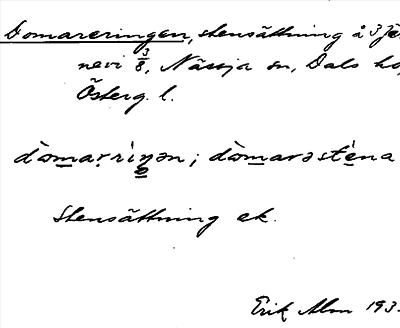 Domareringen, stensättning å 3 Je
nevi 3/8, Nässja sn, Dals h
Österg. l.
dòmarriŋən; dòmarəsténa
Stensättning ek.
Erik Alm 193